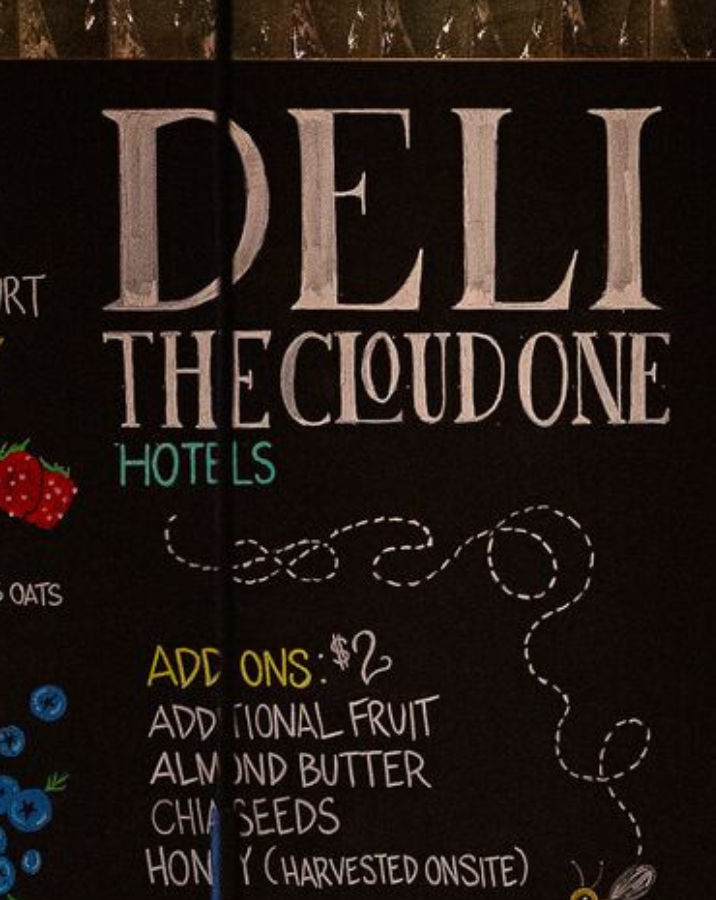 DELI
THE CLOUD ONE
HOTELS
OATS
ADD ONS: $2
ADDITIONAL FRUIT
ALMOND BUTTER
CHIA SEEDS
HONEY (HARVESTED ONSITE)